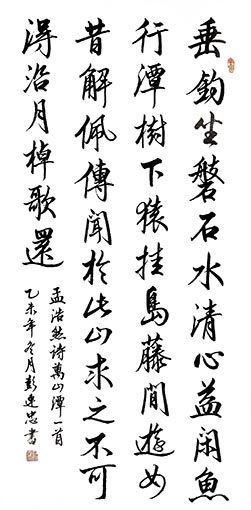 垂釣坐磐石水清心益闲魚
行潭樹下猿挂島藤間遊女
昔解佩傳聞於此山求之不可
得沿月棹歌還
孟浩然詩萬山潭一首
乙未年冬月彭忠書